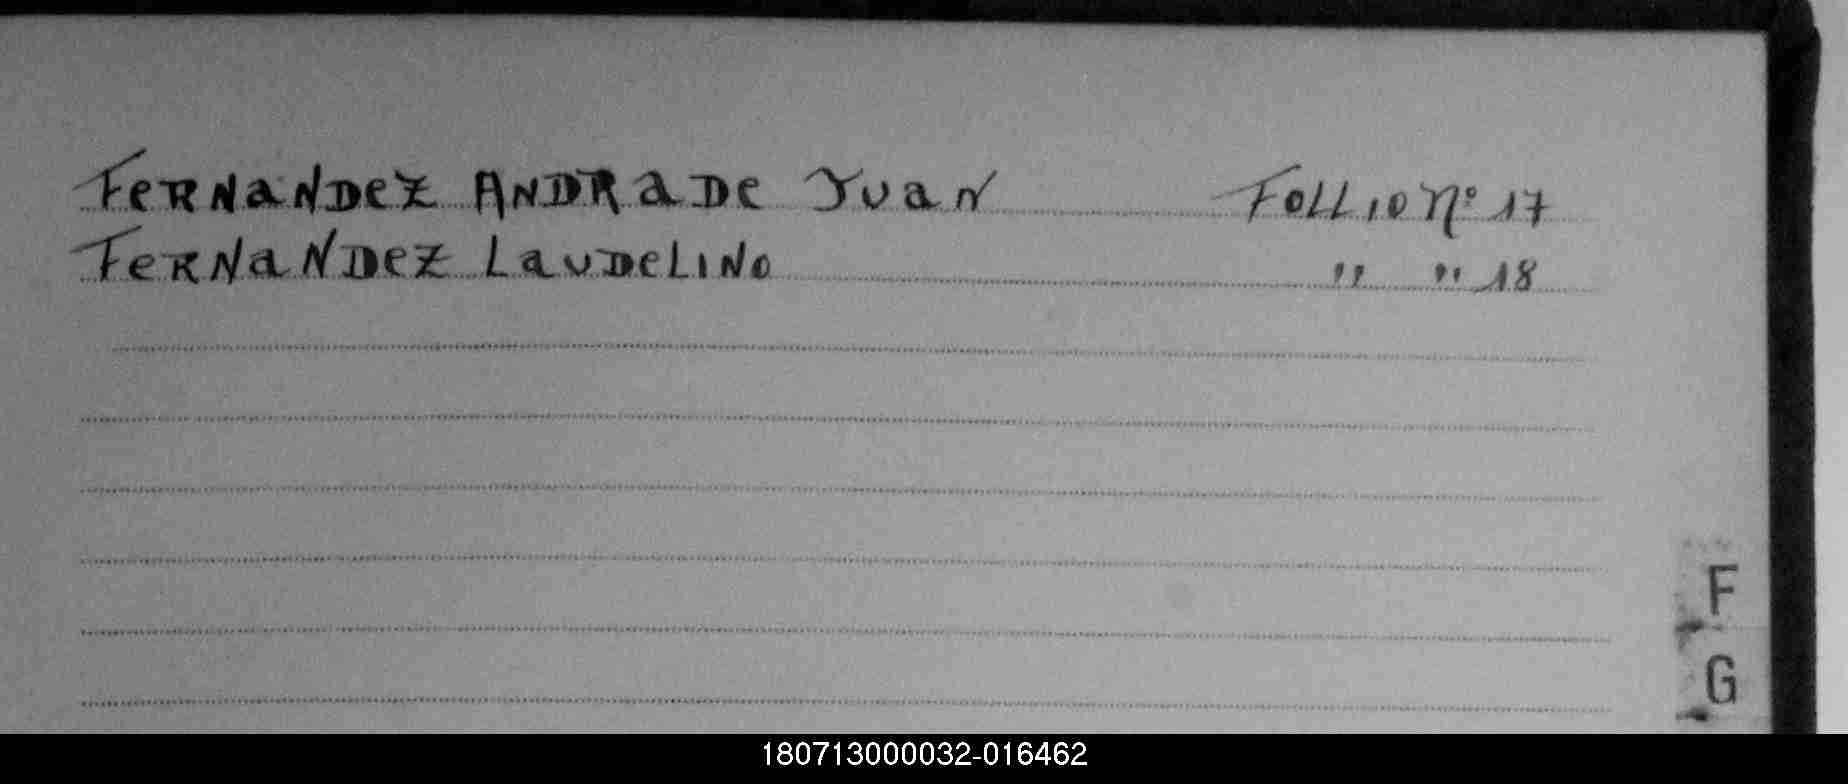 FeRNaNDeZ ANDRaDe Juan Follio Nº 17
FeRNaNDeZ LauDeLINo " " 18
F
G
180713000032-016462